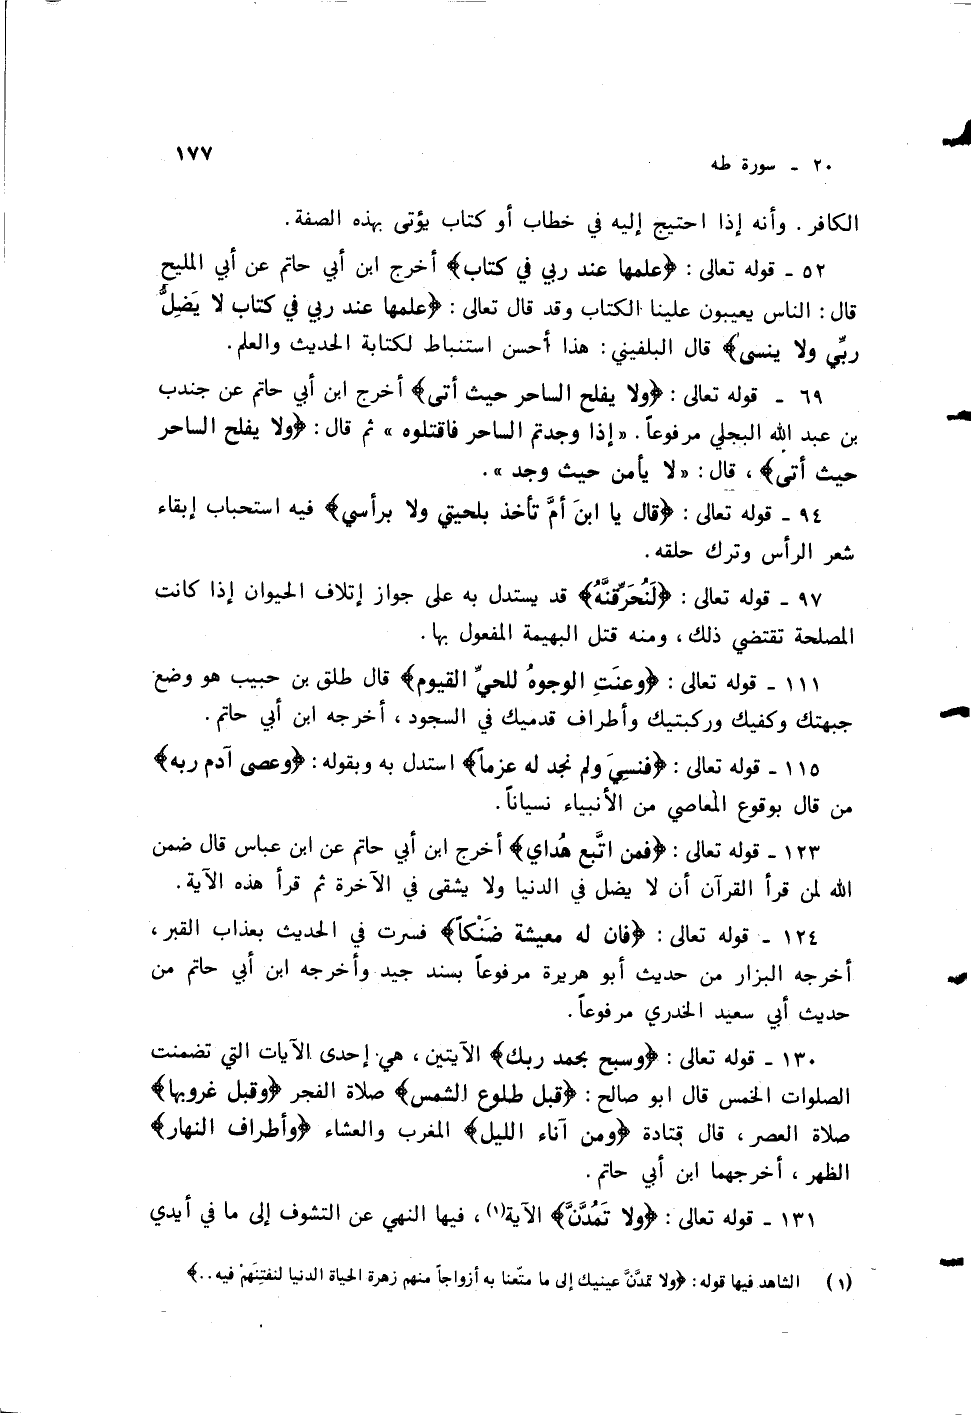 ٢٠ - سورة طه ١٧٧
الكافر. وأنه إذا احتيج إليه في خطاب أو كتاب يؤتى بهذه الصفة.
٥٢ - قوله تعالى: ﴿علمها عند ربي في كتاب﴾ أخرج ابن أبي حاتم عن أبي المليح
قال: الناس يعيبون علينا الكتاب وقد قال تعالى: ﴿علمها عند ربي في كتاب لا يَضِلُّ
ربِّي ولا ينسى﴾ قال البلفيني: هذا أحسن استنباط لكتابة الحديث والعلم.
٦٩ - قوله تعالى: ﴿ولا يفلح الساحر حيث أتى﴾ أخرج ابن أبي حاتم عن جندب
بن عبد الله البجلي مرفوعاً. «إذا وجدتم الساحر فاقتلوه» ثم قال: ﴿ولا يفلح الساحر
حيث أتى﴾، قال: «لا يأمن حيث وجد».
٩٤ - قوله تعالى: ﴿قال يا ابنَ أمَّ تأخذ بلحيتي ولا برأسي﴾ فيه استحباب إبقاء
شعر الرأس وترك حلقه.
٩٧ - قوله تعالى: ﴿لَنُحَرِّقنَّهُ﴾ قد يستدل به على جواز إتلاف الحيوان إذا كانت
المصلحة تقتضي ذلك، ومنه قتل البهيمة المفعول بها.
١١١ - قوله تعالى: ﴿وعنَتِ الوجوهُ للحيِّ القيوم﴾ قال طلق بن حبيب هو وضع
جبهتك وكفيك وركبتيك وأطراف قدميك في السجود، أخرجه ابن أبي حاتم.
١١٥ - قوله تعالى: ﴿فنسِيَ ولم نجد له عزماً﴾ استدل به وبقوله: ﴿وعصى آدم ربه﴾
من قال بوقوع المعاصي من الأنبياء نسياناً.
١٢٣ - قوله تعالى: ﴿فمن اتَّبع هُداي﴾ أخرج ابن أبي حاتم عن ابن عباس قال ضمن
الله لمن قرأ القرآن أن لا يضل في الدنيا ولا يشقى في الآخرة ثم قرأ هذه الآية.
١٢٤ - قوله تعالى: ﴿فان له معيشة ضَنْكاً﴾ فسرت في الحديث بعذاب القبر،
أخرجه البزار من حديث أبو هريرة مرفوعاً بسند جيد وأخرجه ابن أبي حاتم من
حديث أبي سعيد الخدري مرفوعاً.
١٣٠ - قوله تعالى: ﴿وسبح بحمد ربك﴾ الآيتين، هي إحدى الآيات التي تضمنت
الصلوات الخمس قال ابو صالح: ﴿قبل طلوع الشمس﴾ صلاة الفجر ﴿وقبل غروبها﴾
صلاة العصر، قال قتادة ﴿ومن آناء الليل﴾ المغرب والعشاء ﴿وأطراف النهار﴾
الظهر، أخرجهما ابن أبي حاتم.
١٣١ - قوله تعالى: ﴿ولا تَمُدَّنَّ﴾ الآية(١)، فيها النهي عن التشوف إلى ما في أيدي
(١) الشاهد فيها قوله: ﴿ولا تمدَّنَّ عينيك إلى ما متّعنا به أزواجاً منهم زهرة الحياة الدنيا لنفتِنَهمْ فيه..﴾